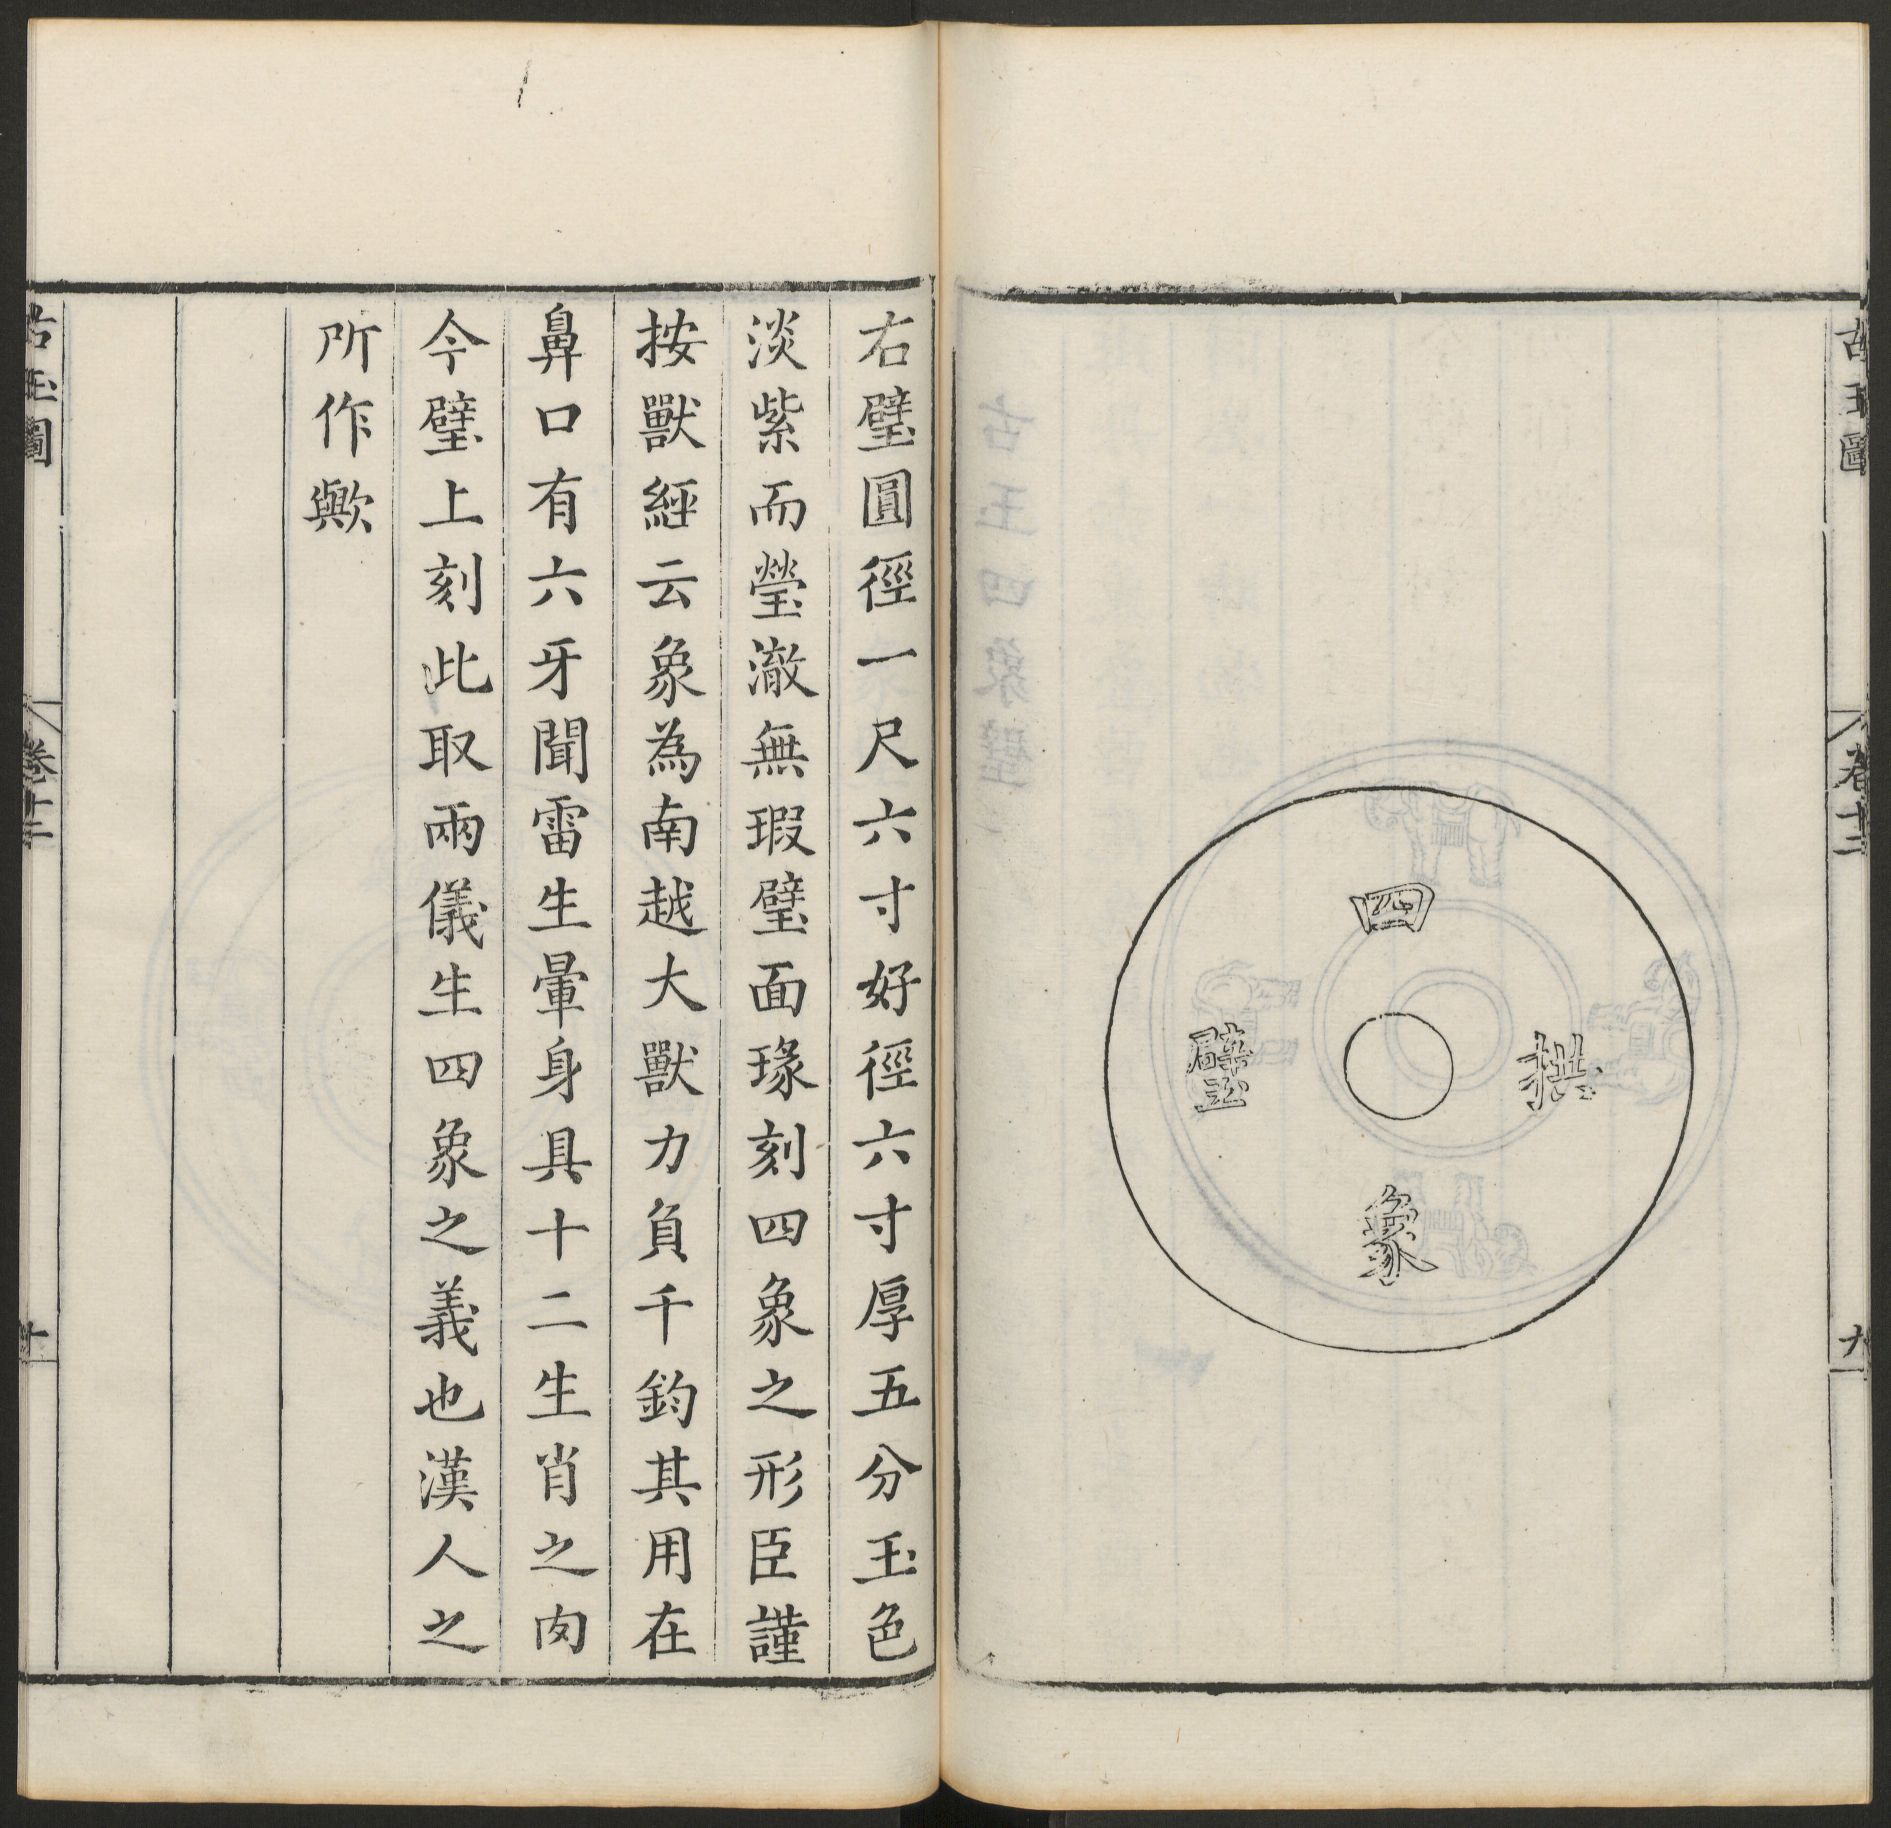 古玉圖
卷十二
九
四
象
拱
璧
右璧圓徑一尺六寸好徑六寸厚五分玉色
淡紫而瑩澈無瑕璧面瑑刻四象之形臣謹
按獸經云象為南越大獸力負千鈞其用在
鼻口有六牙聞雷生暈身具十二生肖之肉
今璧上刻此取兩儀生四象之義也漢人之
所作歟
古玉圖
卷十二
十